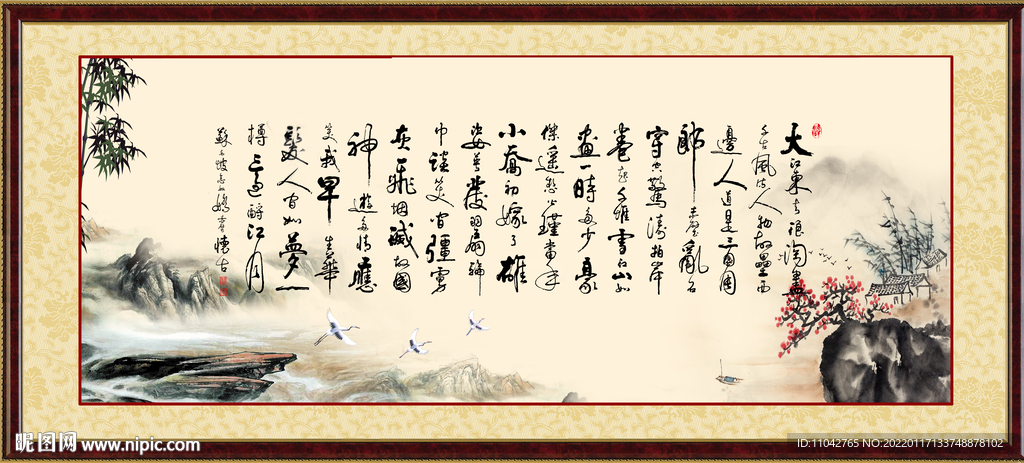 大江東去浪淘盡
千古風流人物故壘西
邊人道是三國周
郎赤壁亂石
穿空驚濤拍岸
卷起千堆雪江山如
畫一時多少豪
傑遙想公瑾當年
小喬初嫁了雄
姿英發羽扇綸
巾談笑間強虜
灰飛烟滅故國
神遊多情應
笑我早生華
髮人间如夢一
樽還酹江月
蘇東坡念奴嬌赤壁懷古
昵图网 www.nipic.com
ID:11042765 NO:20220117133748878102